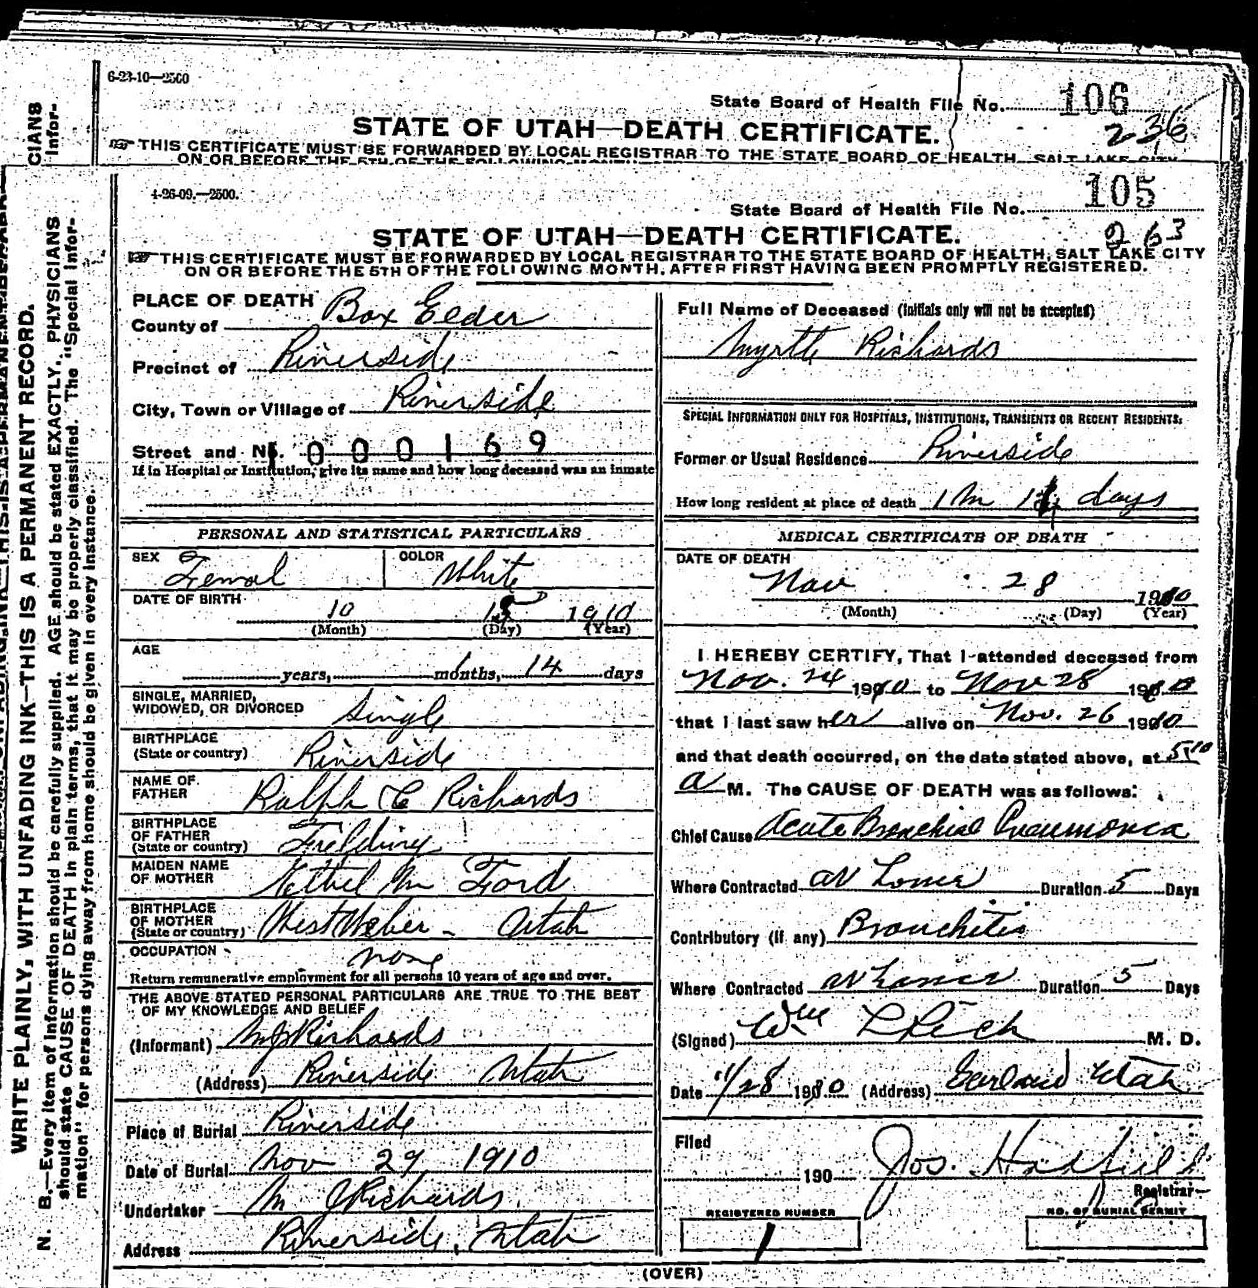 CIANS
Infor-
6-23-10—2500
State Board of Health File No. 106
236
STATE OF UTAH—DEATH CERTIFICATE.
THIS CERTIFICATE MUST BE FORWARDED BY LOCAL REGISTRAR TO THE STATE BOARD OF HEALTH, SALT LAKE CITY
ON OR BEFORE THE 5TH OF THE FOLLOWING
WRITE PLAINLY, WITH UNFADING INK—THIS IS A PERMANENT RECORD.
N. B.—Every item of information should be carefully supplied. AGE should be stated EXACTLY. PHYSICIANS
should state CAUSE OF DEATH in plain terms, that it may be properly classified. The "Special Infor-
mation" for persons dying away from home should be given in every instance.
4-26-09.—2500.
State Board of Health File No. 105
263
STATE OF UTAH—DEATH CERTIFICATE.
THIS CERTIFICATE MUST BE FORWARDED BY LOCAL REGISTRAR TO THE STATE BOARD OF HEALTH, SALT LAKE CITY
ON OR BEFORE THE 5TH OF THE FOLLOWING MONTH, AFTER FIRST HAVING BEEN PROMPTLY REGISTERED.
PLACE OF DEATH
County of Box Elder
Precinct of Riverside
City, Town or Village of Riverside
Street and No. 000169
If in Hospital or Institution, give its name and how long deceased was an inmate
PERSONAL AND STATISTICAL PARTICULARS
SEX Femal COLOR White
DATE OF BIRTH 10 15 1910
(Month) (Day) (Year)
AGE
years, 1 months, 14 days
SINGLE, MARRIED,
WIDOWED, OR DIVORCED Single
BIRTHPLACE
(State or country) Riverside
NAME OF
FATHER Ralph C Richards
BIRTHPLACE
OF FATHER
(State or country) Fielding
MAIDEN NAME
OF MOTHER Ethel M Ford
BIRTHPLACE
OF MOTHER
(State or country) West Weber - Utah
OCCUPATION none
Return remunerative employment for all persons 10 years of age and over.
THE ABOVE STATED PERSONAL PARTICULARS ARE TRUE TO THE BEST
OF MY KNOWLEDGE AND BELIEF
(Informant) M J Richards
(Address) Riverside Utah
Place of Burial Riverside
Date of Burial Nov 29, 1910
Undertaker M J Richards
Address Riverside, Utah
Full Name of Deceased (Initials only will not be accepted)
Myrtle Richards
SPECIAL INFORMATION ONLY FOR HOSPITALS, INSTITUTIONS, TRANSIENTS OR RECENT RESIDENTS.
Former or Usual Residence Riverside
How long resident at place of death 1 M 14 days
MEDICAL CERTIFICATE OF DEATH
DATE OF DEATH
Nov 28 1910
(Month) (Day) (Year)
I HEREBY CERTIFY, That I attended deceased from
Nov. 24 1910 to Nov 28 1910
that I last saw her alive on Nov. 26 1910
and that death occurred, on the date stated above, at 5:10
a M. The CAUSE OF DEATH was as follows:
Chief Cause Acute Bronchial Pneumonia
Where Contracted at home Duration 5 Days
Contributory (if any) Bronchitis
Where Contracted at home Duration 5 Days
(Signed) Wm L Rich M. D.
Date 11/28 1910 (Address) Garland Utah
Filed
190 Jos. Hadfield
Registrar
REGISTERED NUMBER
1
NO. OF BURIAL PERMIT
(OVER)